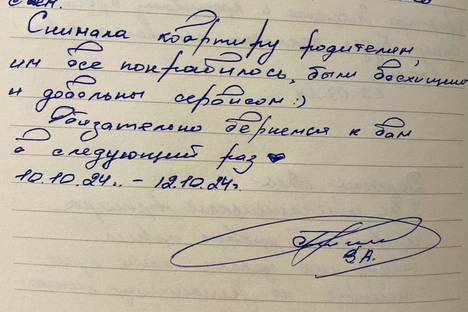 Снимала квартиру родителям,
им все понравилось, были восхищены
и довольны сервисом :)
Обязательно вернемся к вам
в следующий раз
10.10.24г. – 12.10.24г.
В.А.